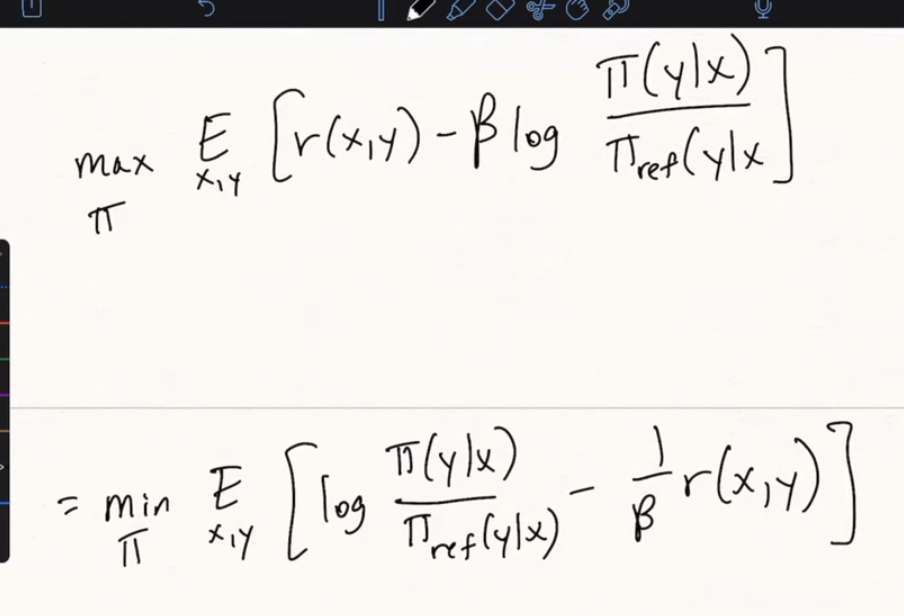 max π E x,y [r(x,y) - β log π(y|x) / π_ref(y|x]
= min π E x,y [log π(y|x) / π_ref(y|x) - 1/β r(x,y)]